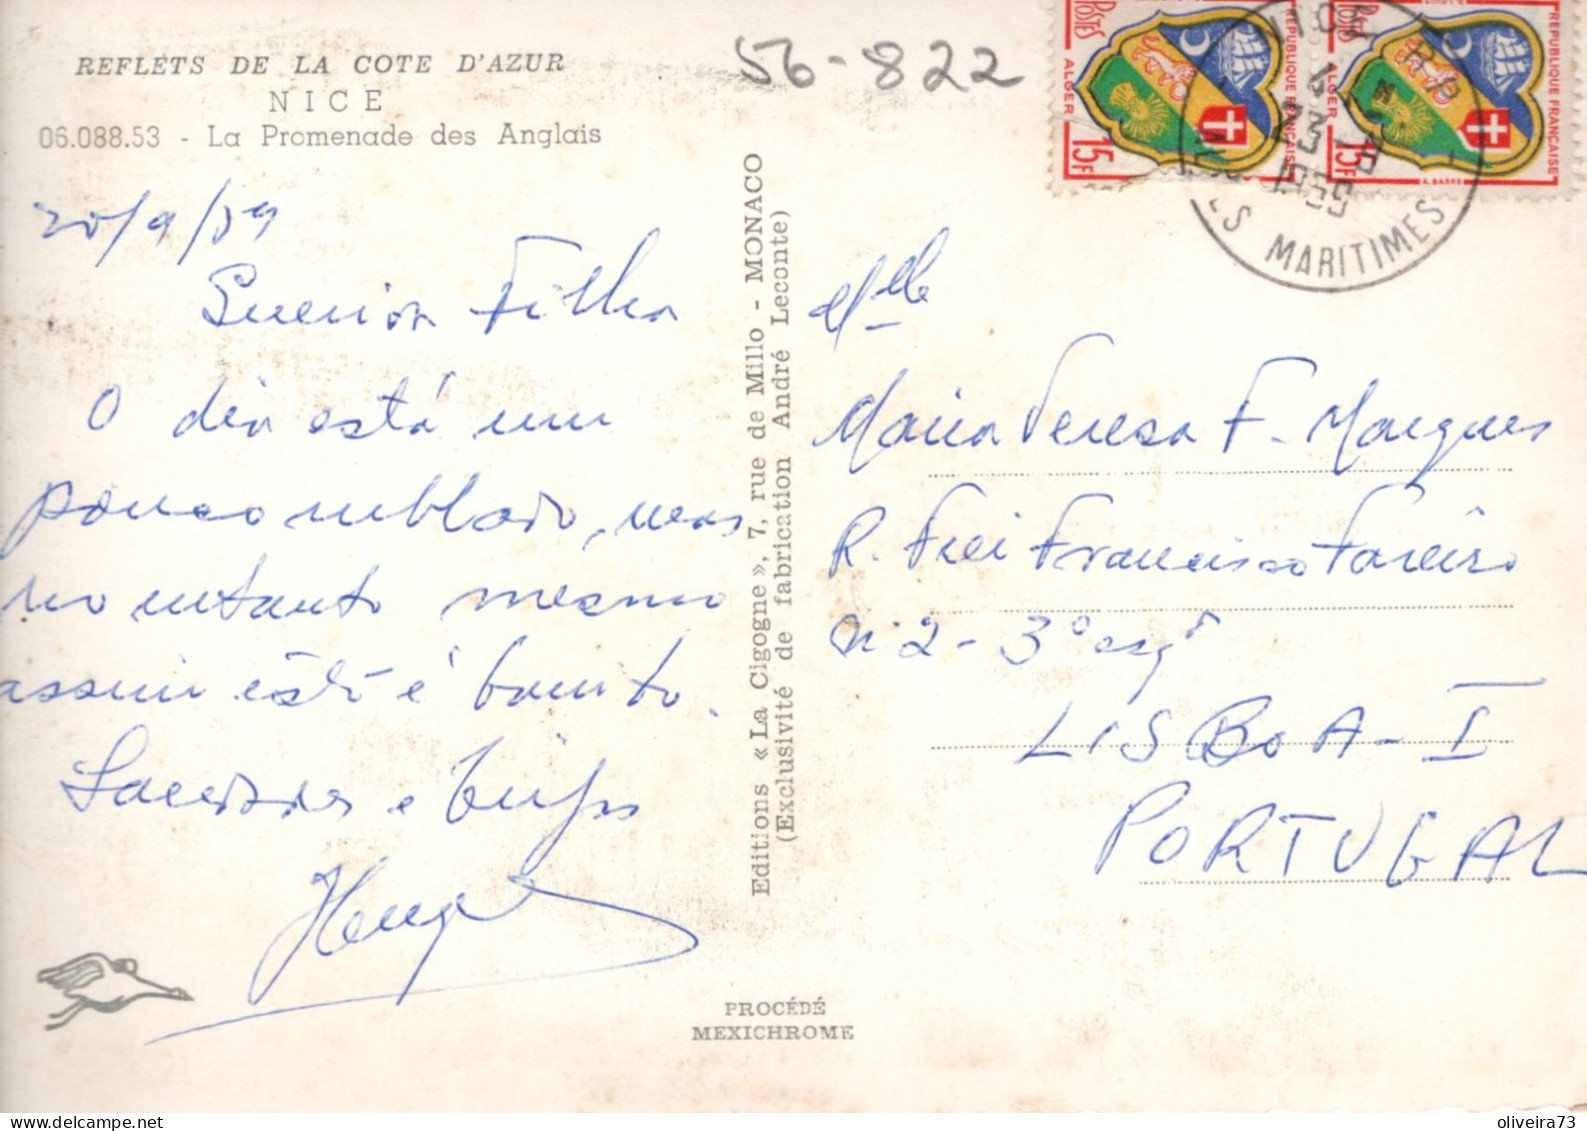 REFLETS DE LA COTE D'AZUR
NICE
06.088.53 - La Promenade des Anglais
56-822
20/9/59
Querida Filha
O dia está um
pouco nublado, mas
no entanto mesmo
assim está é bonito.
Saudades e beijos
Editions « La Cigogne », 7, rue de Millo - MONACO
(Exclusivité de fabrication André Leconte)
PROCÉDÉ
MEXICHROME
POSTES
ALGER
15F
RÉPUBLIQUE FRANÇAISE
POSTES
ALGER
15F
A. BARRE
RÉPUBLIQUE FRANÇAISE
NICE R.P.
23-9
1959
ES MARITIMES
Mlle
Maria Teresa F. Marques
R. Frei Francisco Foreiro
Nº 2 - 3º esqº
LISBOA - I
PORTUGAL
oliveira73